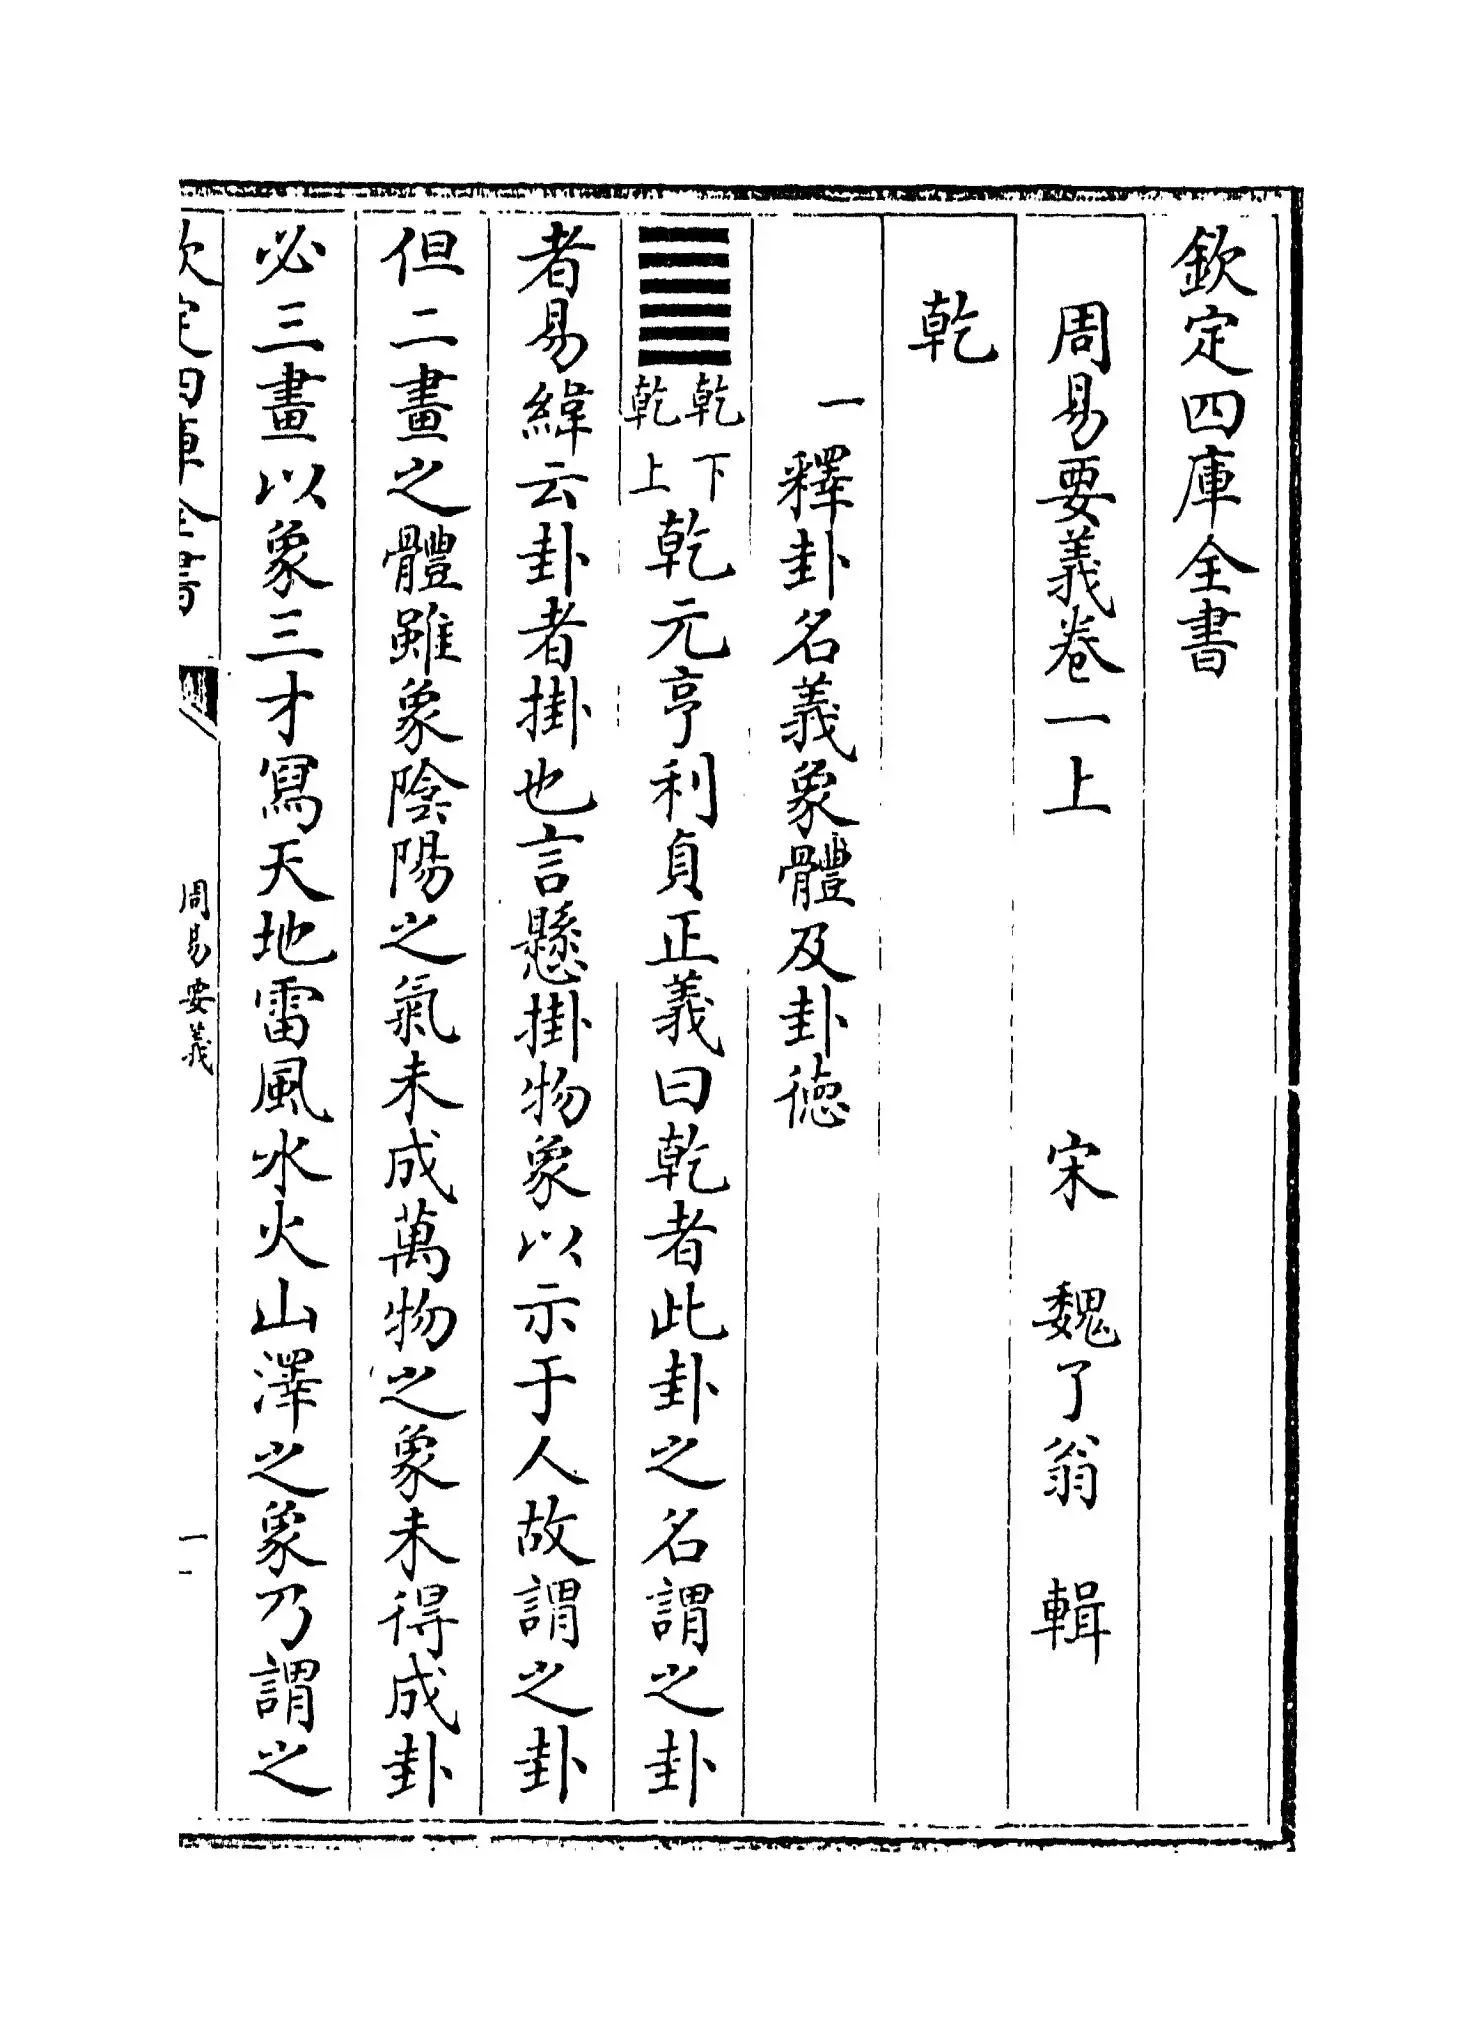 欽定四庫全書
周易要義卷一上 宋 魏了翁 輯
乾
一釋卦名義象體及卦德
乾下乾上乾元亨利貞正義曰乾者此卦之名謂之卦
者易緯云卦者掛也言懸掛物象以示于人故謂之卦
但二畫之體雖象陰陽之氣未成萬物之象未得成卦
必三畫以象三才寫天地雷風水火山澤之象乃謂之
欽定四庫全書 周易要義 一